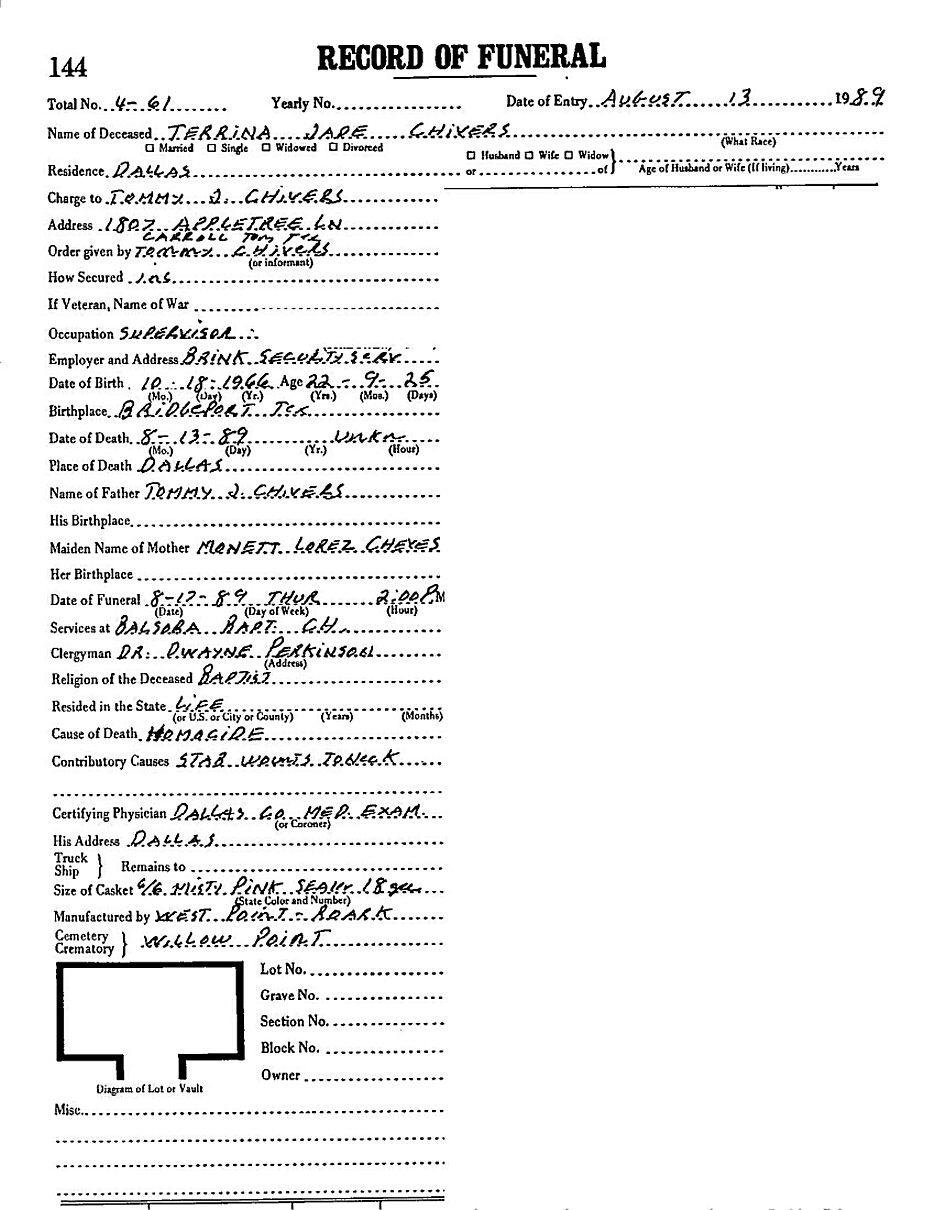 144
RECORD OF FUNERAL
Total No. 4-61 Yearly No. Date of Entry AUGUST 13 1989
Name of Deceased TERRINA JADE CHIVERS
☐ Married ☐ Single ☐ Widowed ☐ Divorced (What Race)
☐ Husband ☐ Wife ☐ Widow
Residence DALLAS or of Age of Husband or Wife (If living) Years
Charge to TOMMY J. CHIVERS
Address 1807 APPLETREE LN
CARROLLTON, TEX
Order given by TOMMY CHIVERS
(or informant)
How Secured INS
If Veteran, Name of War
Occupation SUPERVISOR
Employer and Address BRINK SECURITY SERV.
Date of Birth 10-18-1966 Age 22-9-25
(Mo.) (Day) (Yr.) (Yrs.) (Mos.) (Days)
Birthplace BRIDGEPORT TEX
Date of Death 8-13-89 UNKN
(Mo.) (Day) (Yr.) (Hour)
Place of Death DALLAS
Name of Father TOMMY J. CHIVERS
His Birthplace
Maiden Name of Mother MONETT LOREZ CHEYES
Her Birthplace
Date of Funeral 8-17-89 THUR 2:00 PM
(Date) (Day of Week) (Hour)
Services at BALSORA BAPT. CH.
Clergyman DR. DWAYNE PERKINSON
(Address)
Religion of the Deceased BAPTIST
Resided in the State LIFE
(or U.S. or City or County) (Years) (Months)
Cause of Death HOMACIDE
Contributory Causes STAB WOUNTS TO NECK
Certifying Physician DALLAS CO. MED. EXAM.
(or Coroner)
His Address DALLAS
Truck
Ship } Remains to
Size of Casket 6/6 MISTY PINK SEALER 18 ga
(State Color and Number)
Manufactured by WEST POINT - ROARK
Cemetery
Crematory } WILLOW POINT
Lot No.
Grave No.
Section No.
Block No.
Owner
Diagram of Lot or Vault
Misc.